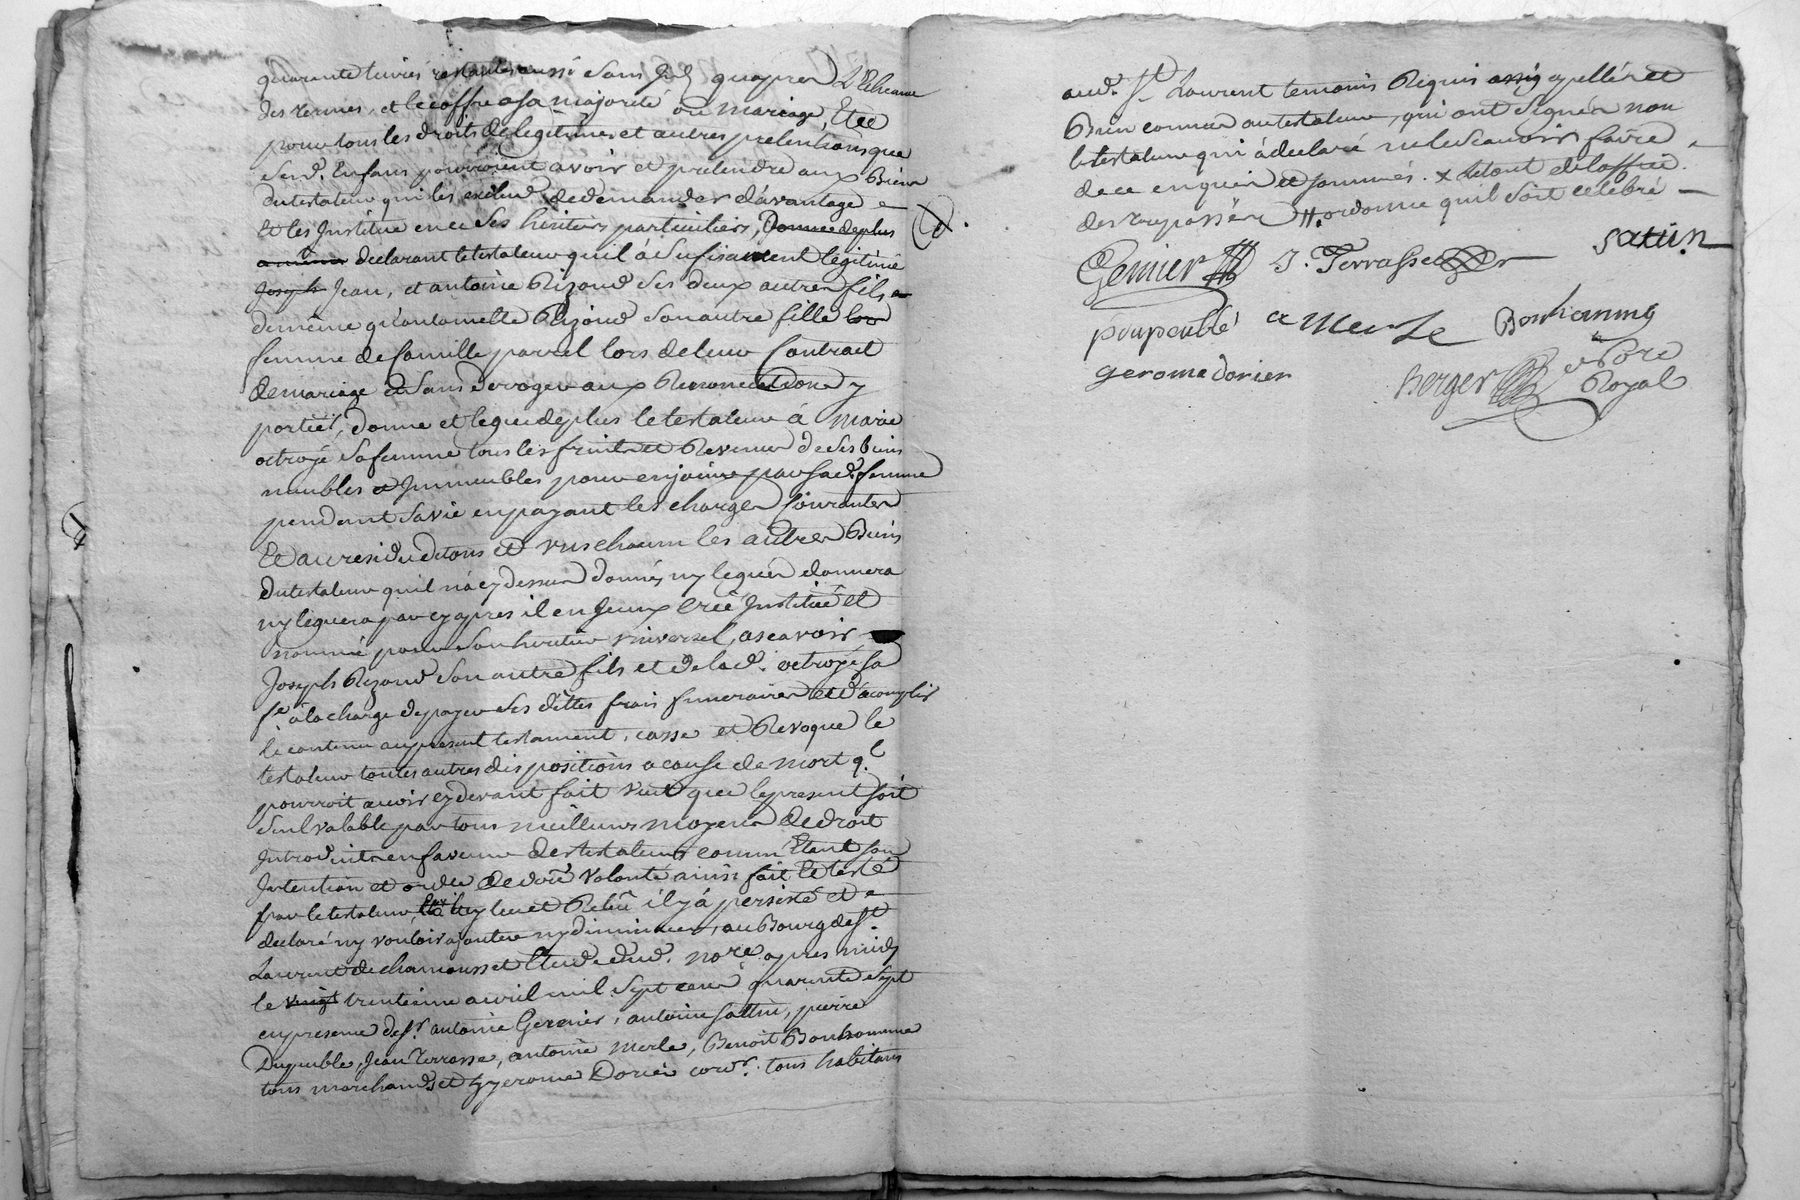 quarante livres restantes aussi sans  qu'apres L'Echeance
des termes, et le coffre a sa majorité ou mariage, Et ce
pour tous les droits de legitimes et autres pretentions que
sesd. Enfans pourroient avoir et pretendre aux Biens
du testateur qui les exclud de demander davantage
et les Institue en ce ses heritiers particuliers, Donne de plus
declarant le testateur qu'il á sufisament légitimé
Joseph Jean, et antoine Rizoud ses deux autres fils
de même qu'antoinette Rizoud son autre fille
femme de famille par  lors de leur Contract
de mariage et sans deroger aux Renonciations y
porteés, donne et legue de plus le testateur á marie
octroye sa femme tous les fruits et Revenus de ses biens
meubles et Immeubles pour en jouir par sad. femme
pendant sa vie en payant les charges courantes
Et au residu de tous et uns chacuns les autres Biens
du testateur qu'il n'a cy dessus donnés ny legués donnera
ny leguera par cy apres il en Iceux creé Institué et
nommé pour son heritier universel, a scavoir
Joseph Rizoud son autre fils et de lad. octroye sa
fe. á la charge de payer ses dettes frais funeraires et d'acomplir
le contenu au present testament, casse et Revoque le
testateur toutes autres dispositions a cause de mort q.l
pourroit avoir cy devant fait veut que le present soit
seul valable par tous meilleurs moyens de droit
Introduits en faveur des testateurs comm' Etant son
Intention et ordre de der.e volonté ainsi fait et testé
par le testateur  leu et Releu il y á persisté et
declaré ny vouloir ajouter ny diminuer, au Bourg de St.
Laurent de chamousset Etude dud. no.re apres midy
le vingt trentieme avril mil sept cent quarante sept
en presence de sr. antoine Gernier, antoine sattin, pierre
Dupeuble, Jean Terrasse, antoine merle, Benoit Bonhomme
tous marchands et hyerome Dorier cord.r tous habitans
aud. St. Laurent temoins Requis  apellés et
Bien connus au testateur, qui ont signés non
le testateur qui á declaré ne le scavoir faire
de ce enquis et sommés. x  de l'offrie
des trepassés # ordonne qu'il soit celebré
Gernier J. Terrasse satin
poupeuble a Merle Bonhomme
gerome dorier Berger no.re
Royal